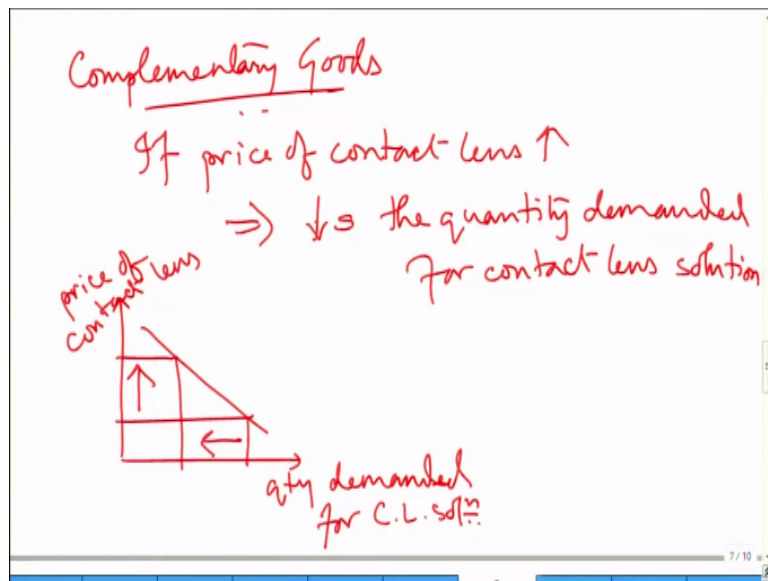 Complementary Goods
If price of contact lens ↑
⇒ ↓s the quantity demanded
for contact lens solution
price of
contact lens
qty demanded
for C.L. solⁿ
7 / 10